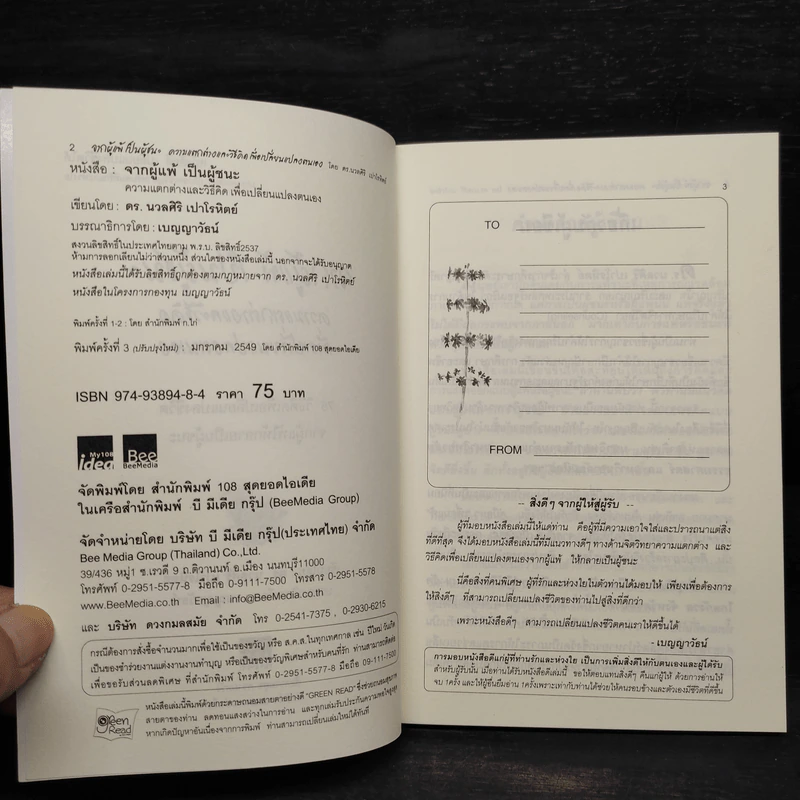 2 จากผู้แพ้ เป็นผู้ชนะ ความแตกต่างและวิธีคิด เพื่อเปลี่ยนแปลงตนเอง โดย ดร.นวลศิริ เปาโรหิตย์
หนังสือ : จากผู้แพ้ เป็นผู้ชนะ
ความแตกต่างและวิธีคิด เพื่อเปลี่ยนแปลงตนเอง
เขียนโดย : ดร. นวลศิริ เปาโรหิตย์
บรรณาธิการโดย : เบญญาวัธน์
สงวนลิขสิทธิ์ในประเทศไทยตาม พ.ร.บ. ลิขสิทธิ์2537
ห้ามการลอกเลียนไม่ว่าส่วนหนึ่ง ส่วนใดของหนังสือเล่มนี้ นอกจากจะได้รับอนุญาต
หนังสือเล่มนี้ได้รับลิขสิทธิ์ถูกต้องตามกฎหมายจาก ดร. นวลศิริ เปาโรหิตย์
หนังสือในโครงการกองทุน เบญญาวัธน์
พิมพ์ครั้งที่ 1-2 : โดย สำนักพิมพ์ ก.ไก่
พิมพ์ครั้งที่ 3 (ปรับปรุงใหม่) : มกราคม 2549 โดย สำนักพิมพ์ 108 สุดยอดไอเดีย
ISBN 974-93894-8-4 ราคา 75 บาท
My108 idea
Bee BeeMedia
จัดพิมพ์โดย สำนักพิมพ์ 108 สุดยอดไอเดีย
ในเครือสำนักพิมพ์ บี มีเดีย กรุ๊ป (BeeMedia Group)
จัดจำหน่ายโดย บริษัท บี มีเดีย กรุ๊ป(ประเทศไทย) จำกัด
Bee Media Group (Thailand) Co.,Ltd.
39/436 หมู่1 ซ.เรวดี 9 ถ.ติวานนท์ อ.เมือง นนทบุรี11000
โทรศัพท์ 0-2951-5577-8 มือถือ 0-9111-7500 โทรสาร 0-2951-5578
www.BeeMedia.co.th Email : info@BeeMedia.co.th
และ บริษัท ดวงกมลสมัย จำกัด โทร 0-2541-7375 , 0-2930-6215
กรณีต้องการสั่งซื้อจำนวนมากเพื่อใช้เป็นของขวัญ หรือ ส.ค.ส.ในทุกเทศกาล เช่น ปีใหม่ วันเกิด
เป็นของชำร่วยงานแต่งงานงานทำบุญ หรือเป็นของขวัญพิเศษสำหรับคนที่รัก ท่านสามารถติดต่อ
เพื่อขอรับส่วนลดพิเศษ ที่สำนักพิมพ์ โทรศัพท์ 0-2951-5577-8 มือถือ 09-111-7500
Green Read
หนังสือเล่มนี้พิมพ์ด้วยกระดาษถนอมสายตาอย่างดี "GREEN READ" ซึ่งช่วยถนอมสุขภาพ
สายตาของท่าน ลดทอนแสงสว่างในการอ่าน และทุกเล่มรับประกันความพอใจสูงสุด
หากเกิดปัญหาอันเนื่องจากการพิมพ์ ท่านสามารถเปลี่ยนเล่มใหม่ได้ทันที
3
TO
FROM
-- สิ่งดีๆ จากผู้ให้สู่ผู้รับ --
ผู้ที่มอบหนังสือเล่มนี้ให้แด่ท่าน คือผู้ที่มีความเอาใจใส่และปรารถนาแต่สิ่ง
ที่ดีที่สุด จึงได้มอบหนังสือเล่มนี้ที่มีแนวทางดีๆ ทางด้านจิตวิทยาความแตกต่าง และ
วิธีคิดเพื่อเปลี่ยนแปลงตนเองจากผู้แพ้ ให้กลายเป็นผู้ชนะ
นี่คือสิ่งที่คนพิเศษ ผู้ที่รักและห่วงใยในตัวท่านได้มอบให้ เพียงเพื่อต้องการ
ให้สิ่งดีๆ ที่สามารถเปลี่ยนแปลงชีวิตของท่านไปสู่สิ่งที่ดีกว่า
เพราะหนังสือดีๆ สามารถเปลี่ยนแปลงชีวิตคนเราให้ดีขึ้นได้
- เบญญาวัธน์
การมอบหนังสือดีแก่ผู้ที่ท่านรักและห่วงใย เป็นการเพิ่มสิ่งดีให้กับตนเองและผู้ได้รับ
สำหรับผู้รับนั้น เมื่อท่านได้รับหนังสือเล่มนี้ ขอให้ตอบแทนสิ่งดีๆ คืนแก่ผู้ให้ ด้วยการอ่านให้
จบ 1ครั้ง และให้ผู้อื่นยืมอ่าน 1ครั้งเพราะเท่ากับท่านได้ช่วยให้คนรอบข้างและตัวเองมีชีวิตที่ดีขึ้น